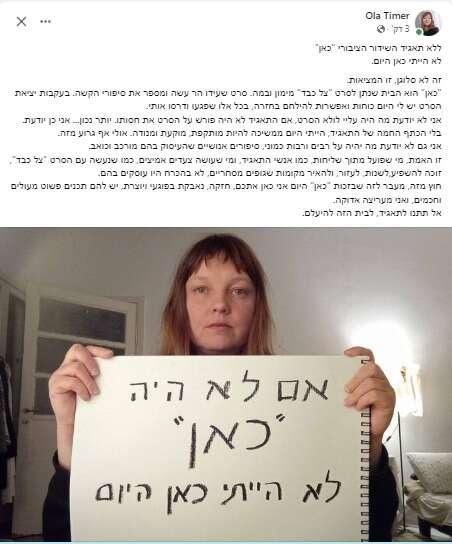 Ola Timer
3 דק'
ללא תאגיד השידור הציבורי "כאן"
לא הייתי כאן היום.
זה לא סלוגן, זו המציאות.
"כאן" הוא הבית שנתן לסרט "צל כבד" מימון ובמה. סרט שעידו הר עשה ומספר את סיפורי הקשה. בעקבות יציאת
הסרט יש לי היום כוחות ואפשרות להילחם בחזרה, בכל אלו שפגעו ודרסו אותי.
אני לא יודעת מה היה עליי לולא הסרט, אם התאגיד לא היה פורש על הסרט את חסותו. יותר נכון... אני כן יודעת.
בלי הכתף החמה של התאגיד, הייתי היום ממשיכה להיות מותקפת, מוקעת ומנודה. אולי אף גרוע מזה.
אני גם לא יודעת מה יהיה על רבים ורבות כמוני, סיפורים אנושיים שהעיסוק בהם מורכב וכואב.
זו האמת. מי שפועל מתוך שליחות, כמו אנשי התאגיד, ומי שעושה צעדים אמיצים, כמו שנעשה עם הסרט "צל כבד",
זוכה להשפיע,לשנות, לעזור, ולהאיר מקומות שגופים מסחריים, לא בהכרח היו עוסקים בהם.
חוץ מזה, מעבר לזה שבזכות "כאן" היום אני כאן אתכם, חזקה, נאבקת בפוגעי ויוצרת, יש להם תכנים פשוט מעולים
וחכמים, ואני מעריצה אדוקה.
אל תתנו לתאגיד, לבית הזה להיעלם.
אם לא היה
"כאן"
לא הייתי כאן היום